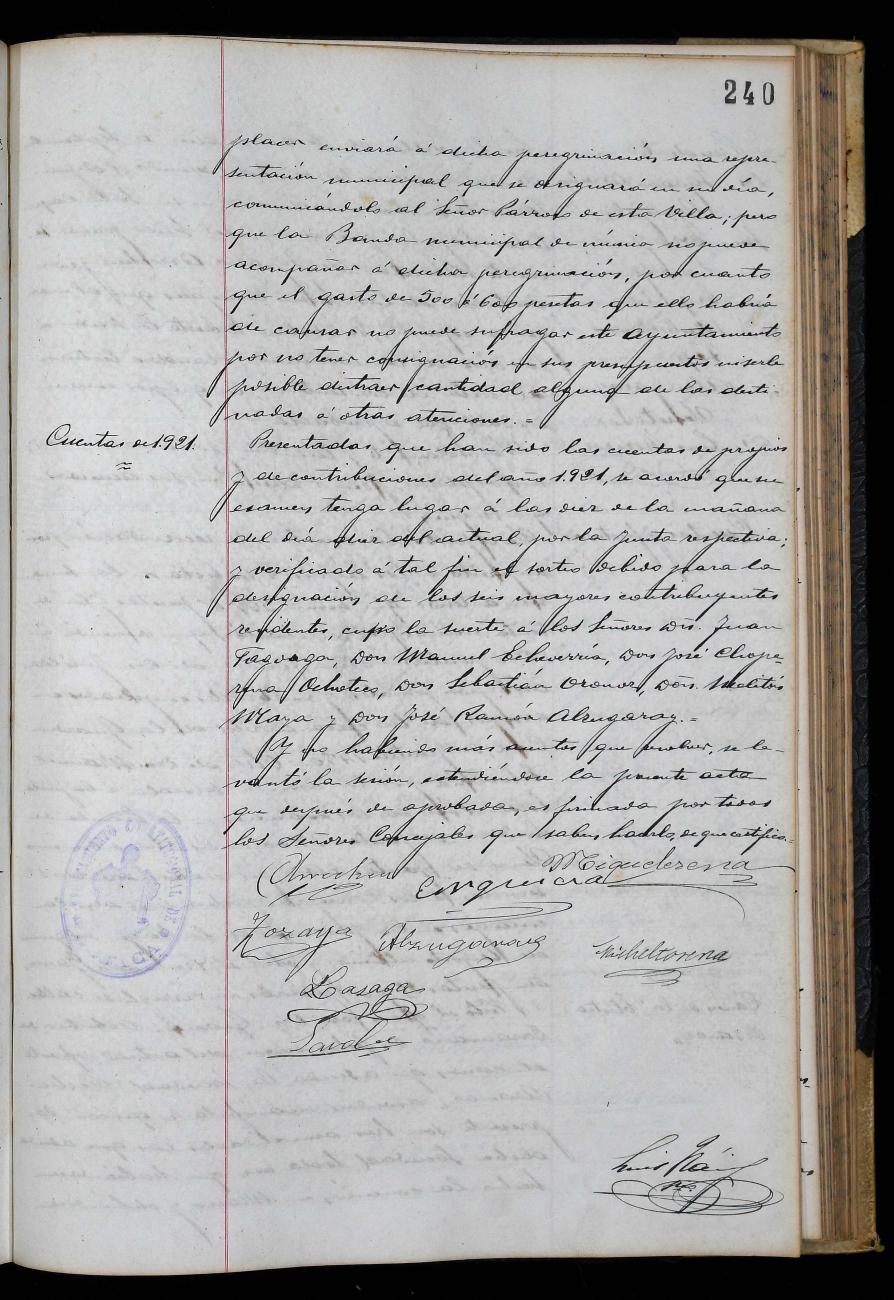 240
placer enviará á dicha peregrinación una repre-
sentación municipal que se designará en su día,
comunicándolo al Señor Párroco de esta Villa; pero
que la Banda municipal de música no puede
acompañar á dicha peregrinación, por cuanto
que el gasto de 500 é 600 pesetas que ello habría
de causar no puede sufragar este Ayuntamiento
por no tener consignación en sus presupuestos ni serle
posible distraer cantidad alguna de las desti-
nadas á otras atenciones. =
Cuentas de 1.921.
Presentadas que han sido las cuentas de propios
y de contribuciones del año 1.921, se acordó que su
examen tenga lugar á las diez de la mañana
del día diez del actual, por la Junta respectiva;
y verificado á tal fin el sorteo debido para la
designación de los seis mayores contribuyentes
residentes, cupo la suerte á los Señores Dn. Juan
Tagoaga, Don Manuel Echeverría, Don José Chope-
rena Ochoteco, Don Sebastián Oronoz, Don Melitón
Maya y Don José Ramón Alzugaray. =
Y no habiendo más asuntos que resolver, se le-
vantó la sesión, extendiéndose la presente acta
que después de aprobada, es firmada por todos
los Señores Concejales que saben hacerlo, de que certifico =
Miquelerena
Zozaya Alzugaray Micheltorena
Lasaga
Luis